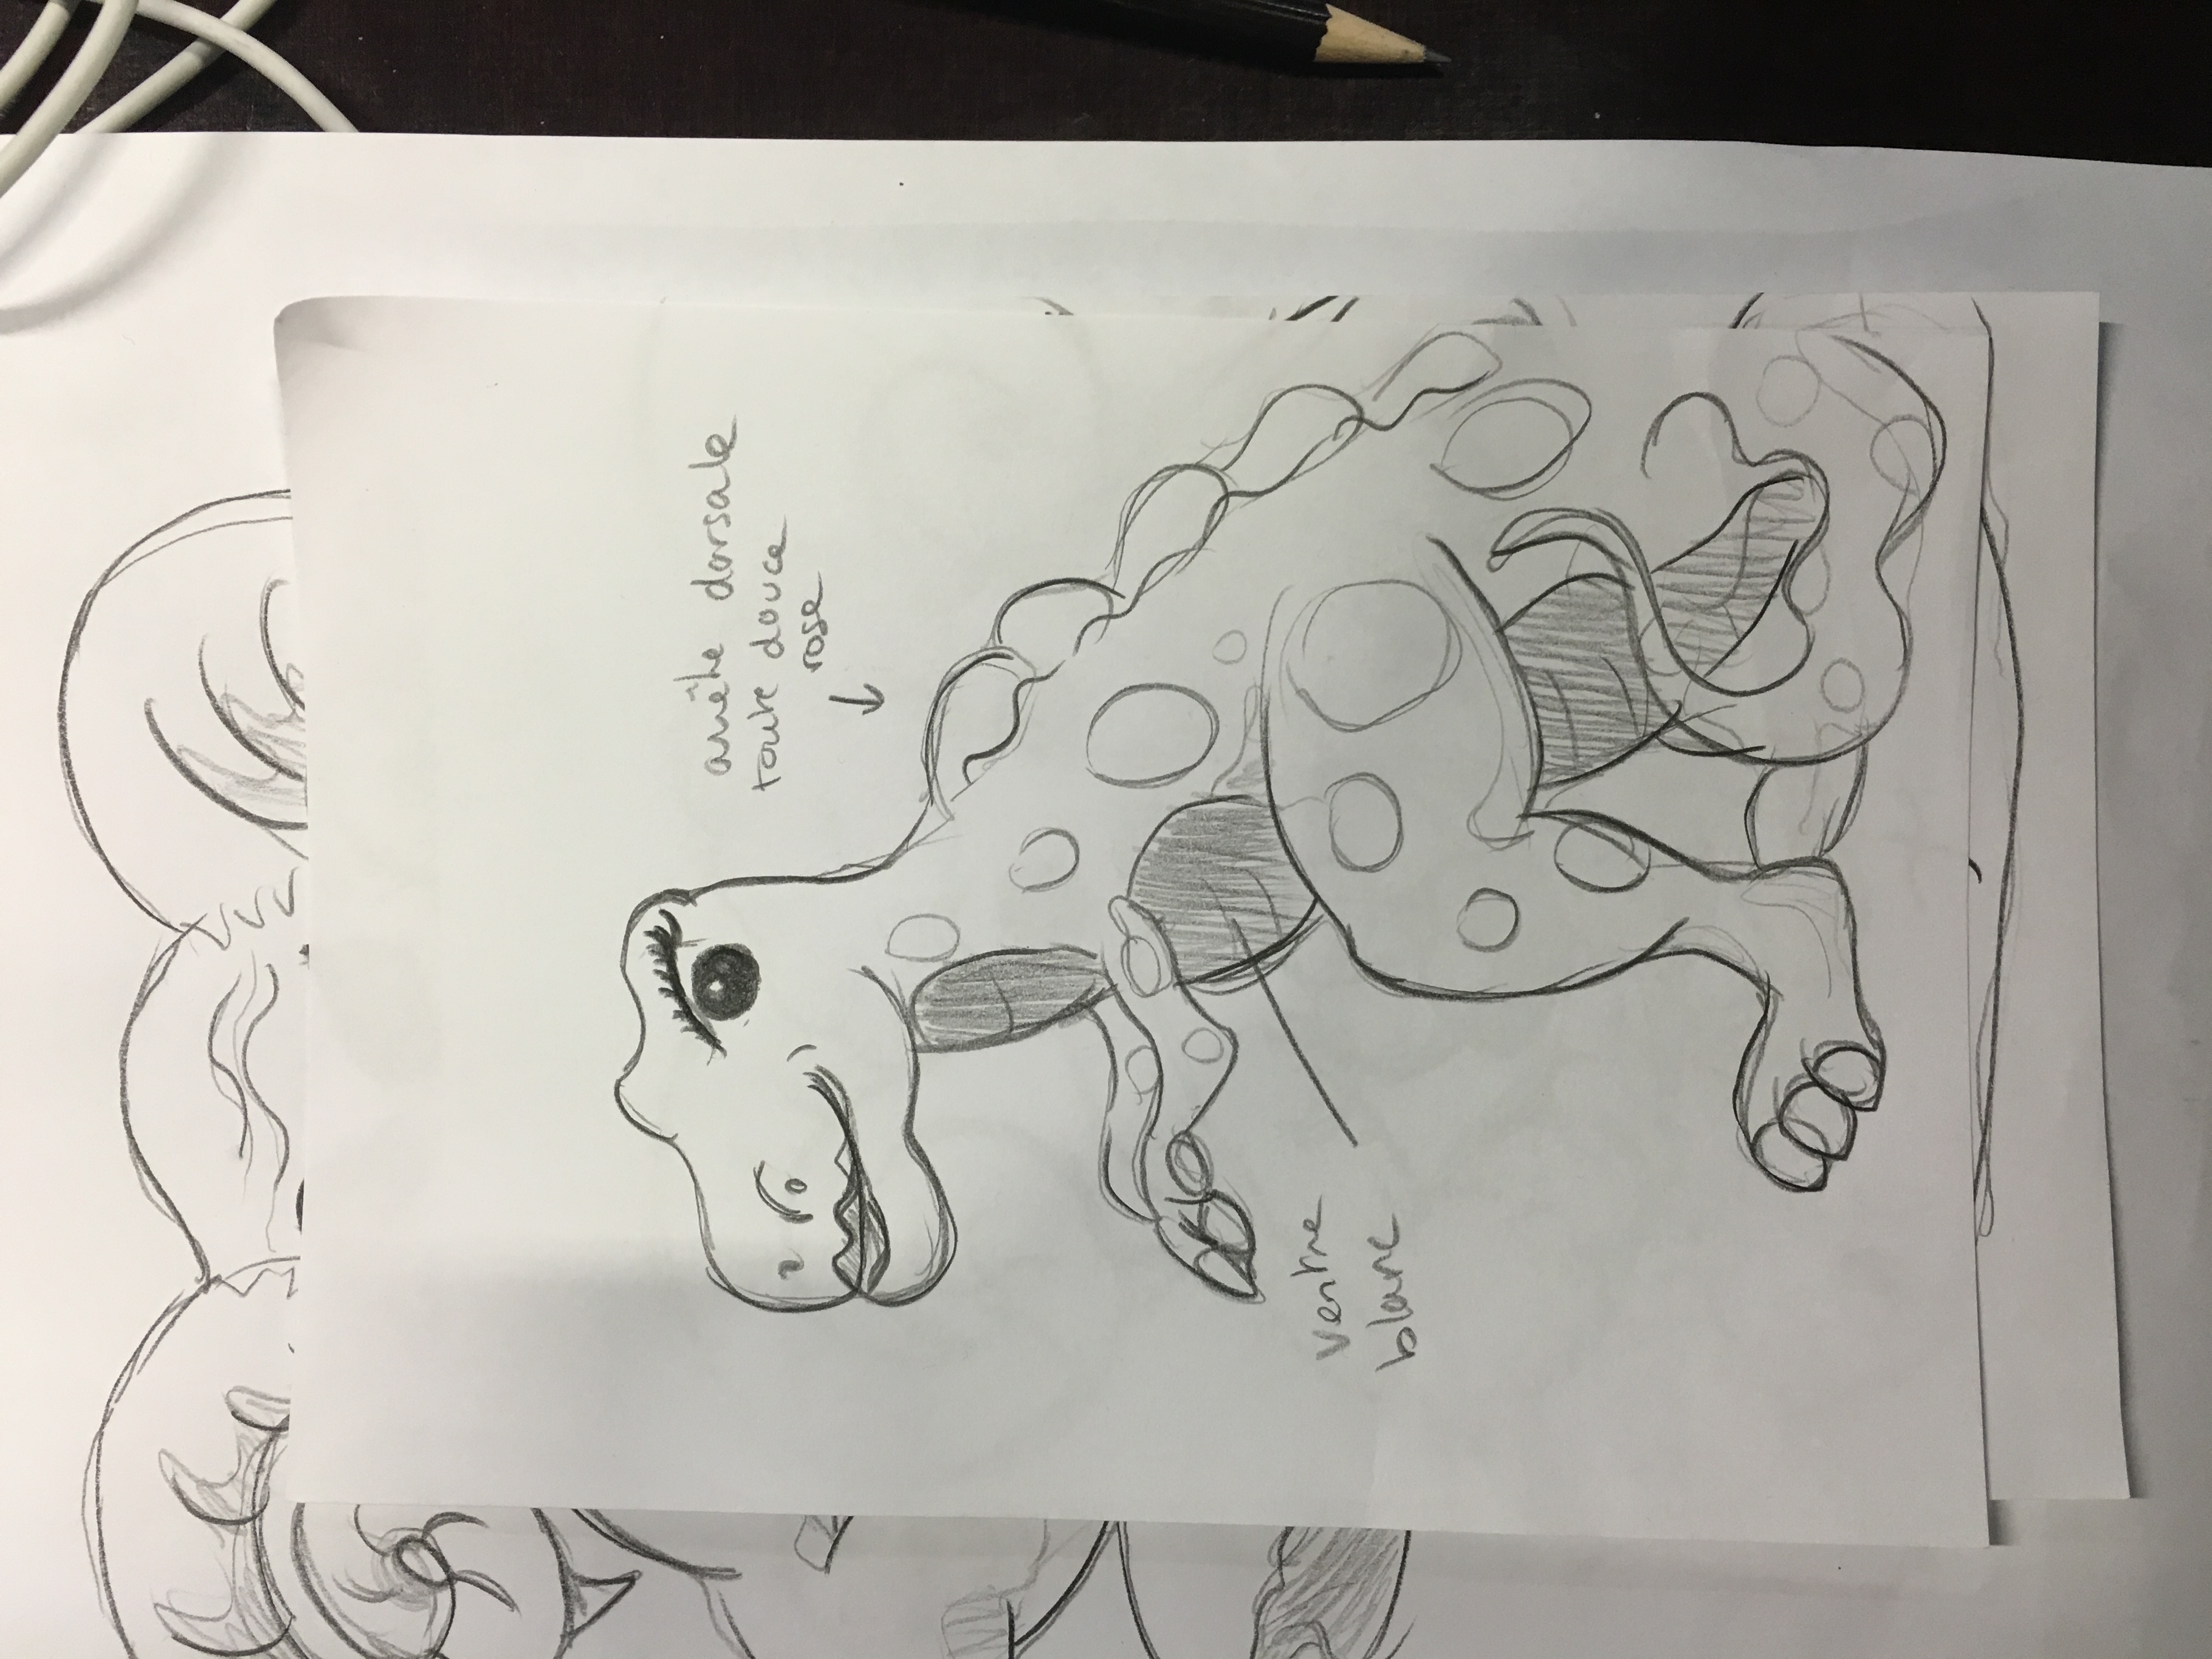 arrête dorsale
toute douce
rose
ventre
blanc